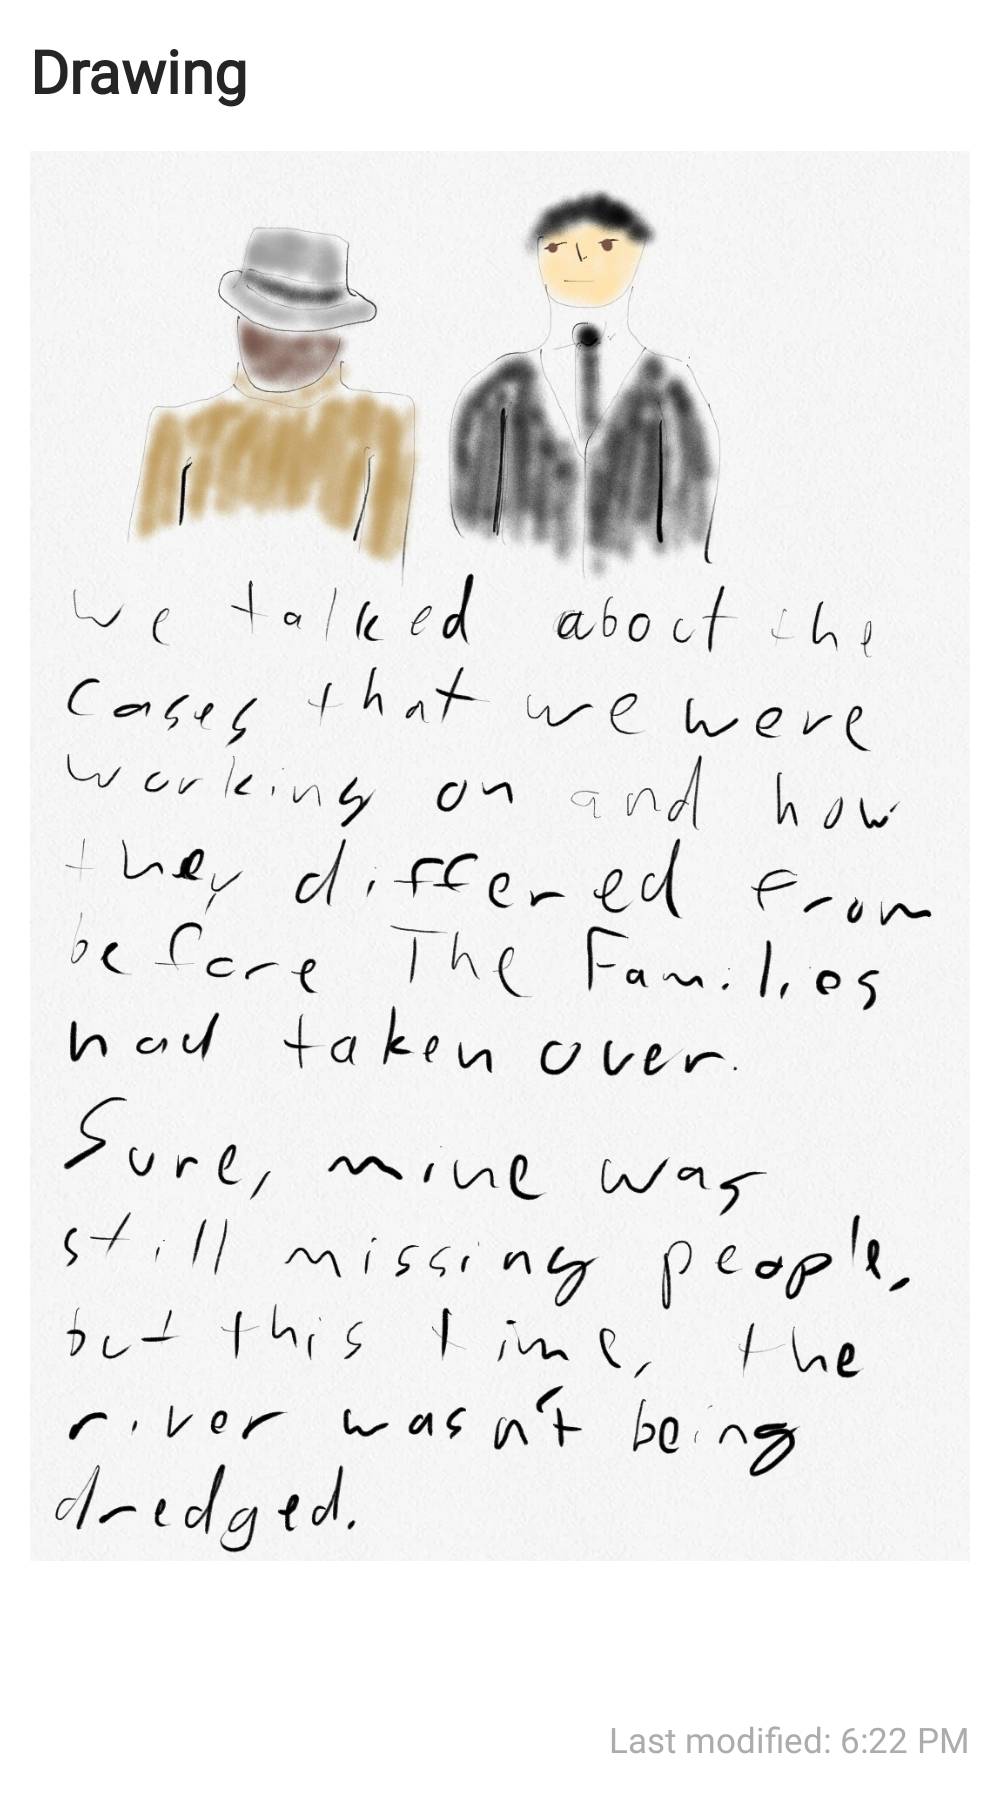 Drawing
We talked about the
Cases that we were
working on and how
they differed from
before The Families
had taken over.
Sure, mine was
still missing people,
but this time, the
river wasn't being
dredged.
Last modified: 6:22 PM